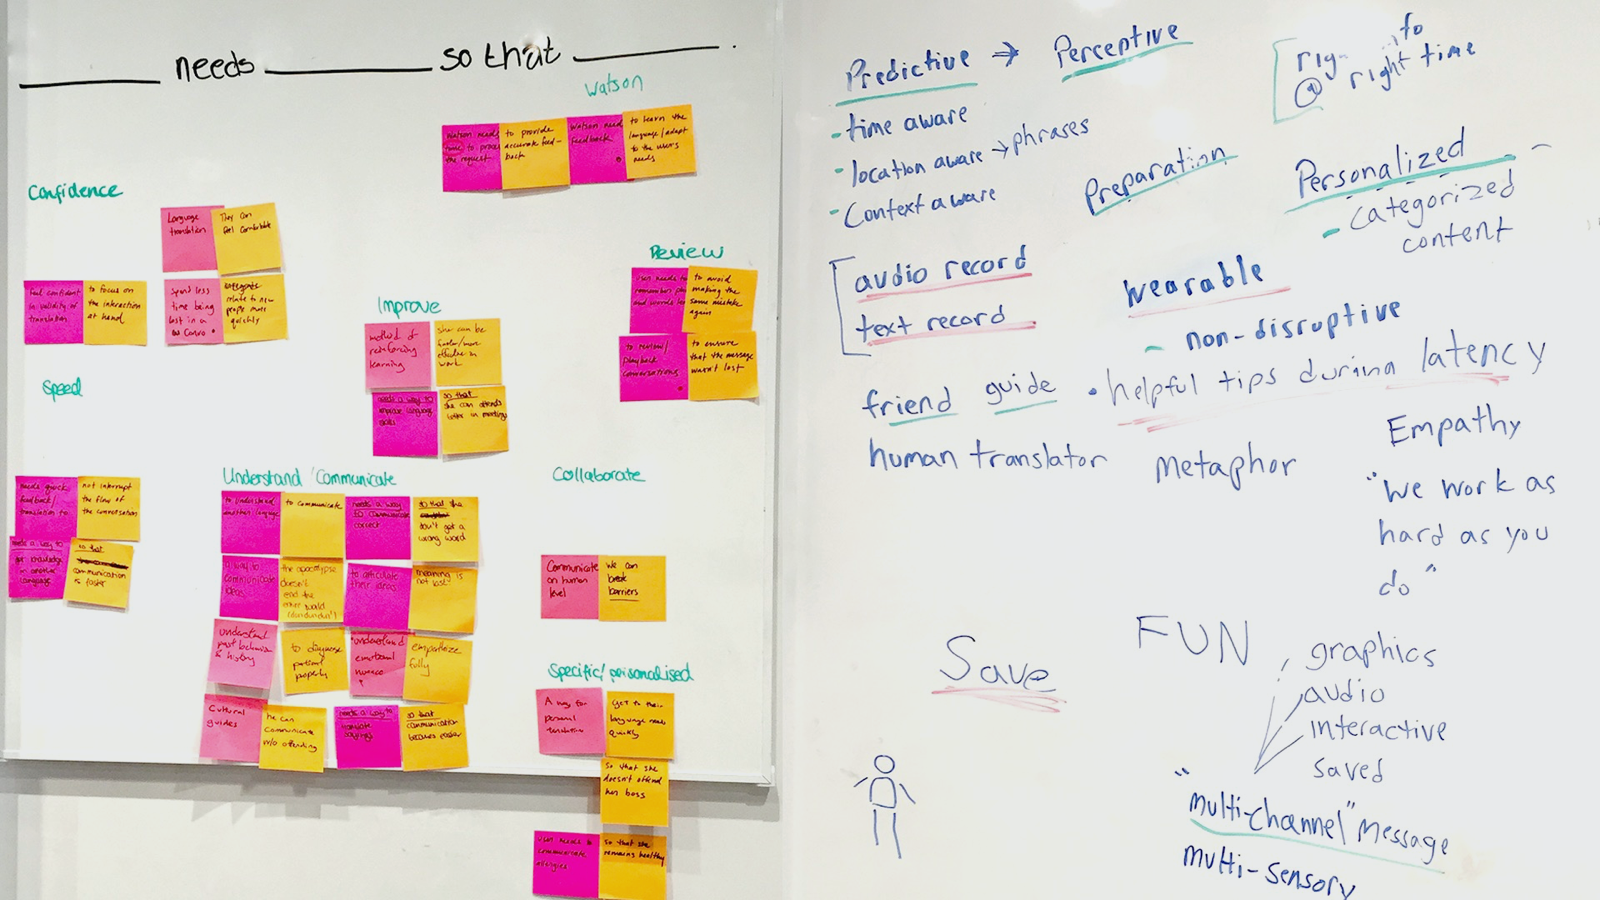 needs so that .
Watson
Watson needs
time to process
the request
to provide
accurate feed-
back
Watson needs
feedback
to learn the
language/adapt
to the users
needs
Confidence
Language
translation
They can
feel comfortable
Feel confident
in validity of
translation
to focus on
the interaction
at hand
Spend less
time being
lost in a
convo
relate to new
people more
quickly
Speed
needs quick
feedback/
translation to
not interrupt
the flow of
the conversation
needs a way to
get knowledge
in another
language
so that
communication
is faster
Improve
method of
reinforcing
learning
she can be
faster/more
effective in
work
needs a way to
improve language
skills
so that
she can attend
in meetings
Review
user needs to
remember
and words
to avoid
making the
same mistake
again
to review/
playback
conversations
to ensure
that the message
wasn't lost
Understand Communicate
to understand
another language
to communicate
needs a way
to communicate
correct
so that the
don't get a
wrong word
a way to
communicate
ideas
the apocalypse
doesn't
end the
world
to articulate
their ideas
meaning is
not lost
understand
past behavior
& history
to diagnose
patient
properly
understand
emotional
nuance
empathize
fully
Cultural
guides
he can
communicate
w/o offending
needs a way to
translate
sayings
so that
communication
becomes easier
Collaborate
Communicate
on human
level
we can
break
barriers
Specific/personalised
A way for
personal
translation
get to their
language needs
quickly
So that she
doesn't offend
her boss
user needs to
communicate
allergies
so that she
remains healthy
Predictive → Perceptive
- time aware
- location aware → phrases
- Context aware
info
@ right time
Preparation
Personalized
- categorized
content
audio record
text record
Wearable
- non-disruptive
friend guide • helpful tips during latency
human translator metaphor
Empathy
"we work as
hard as you
do"
Save
FUN
graphics
audio
interactive
saved
"multi-channel" message
multi-sensory